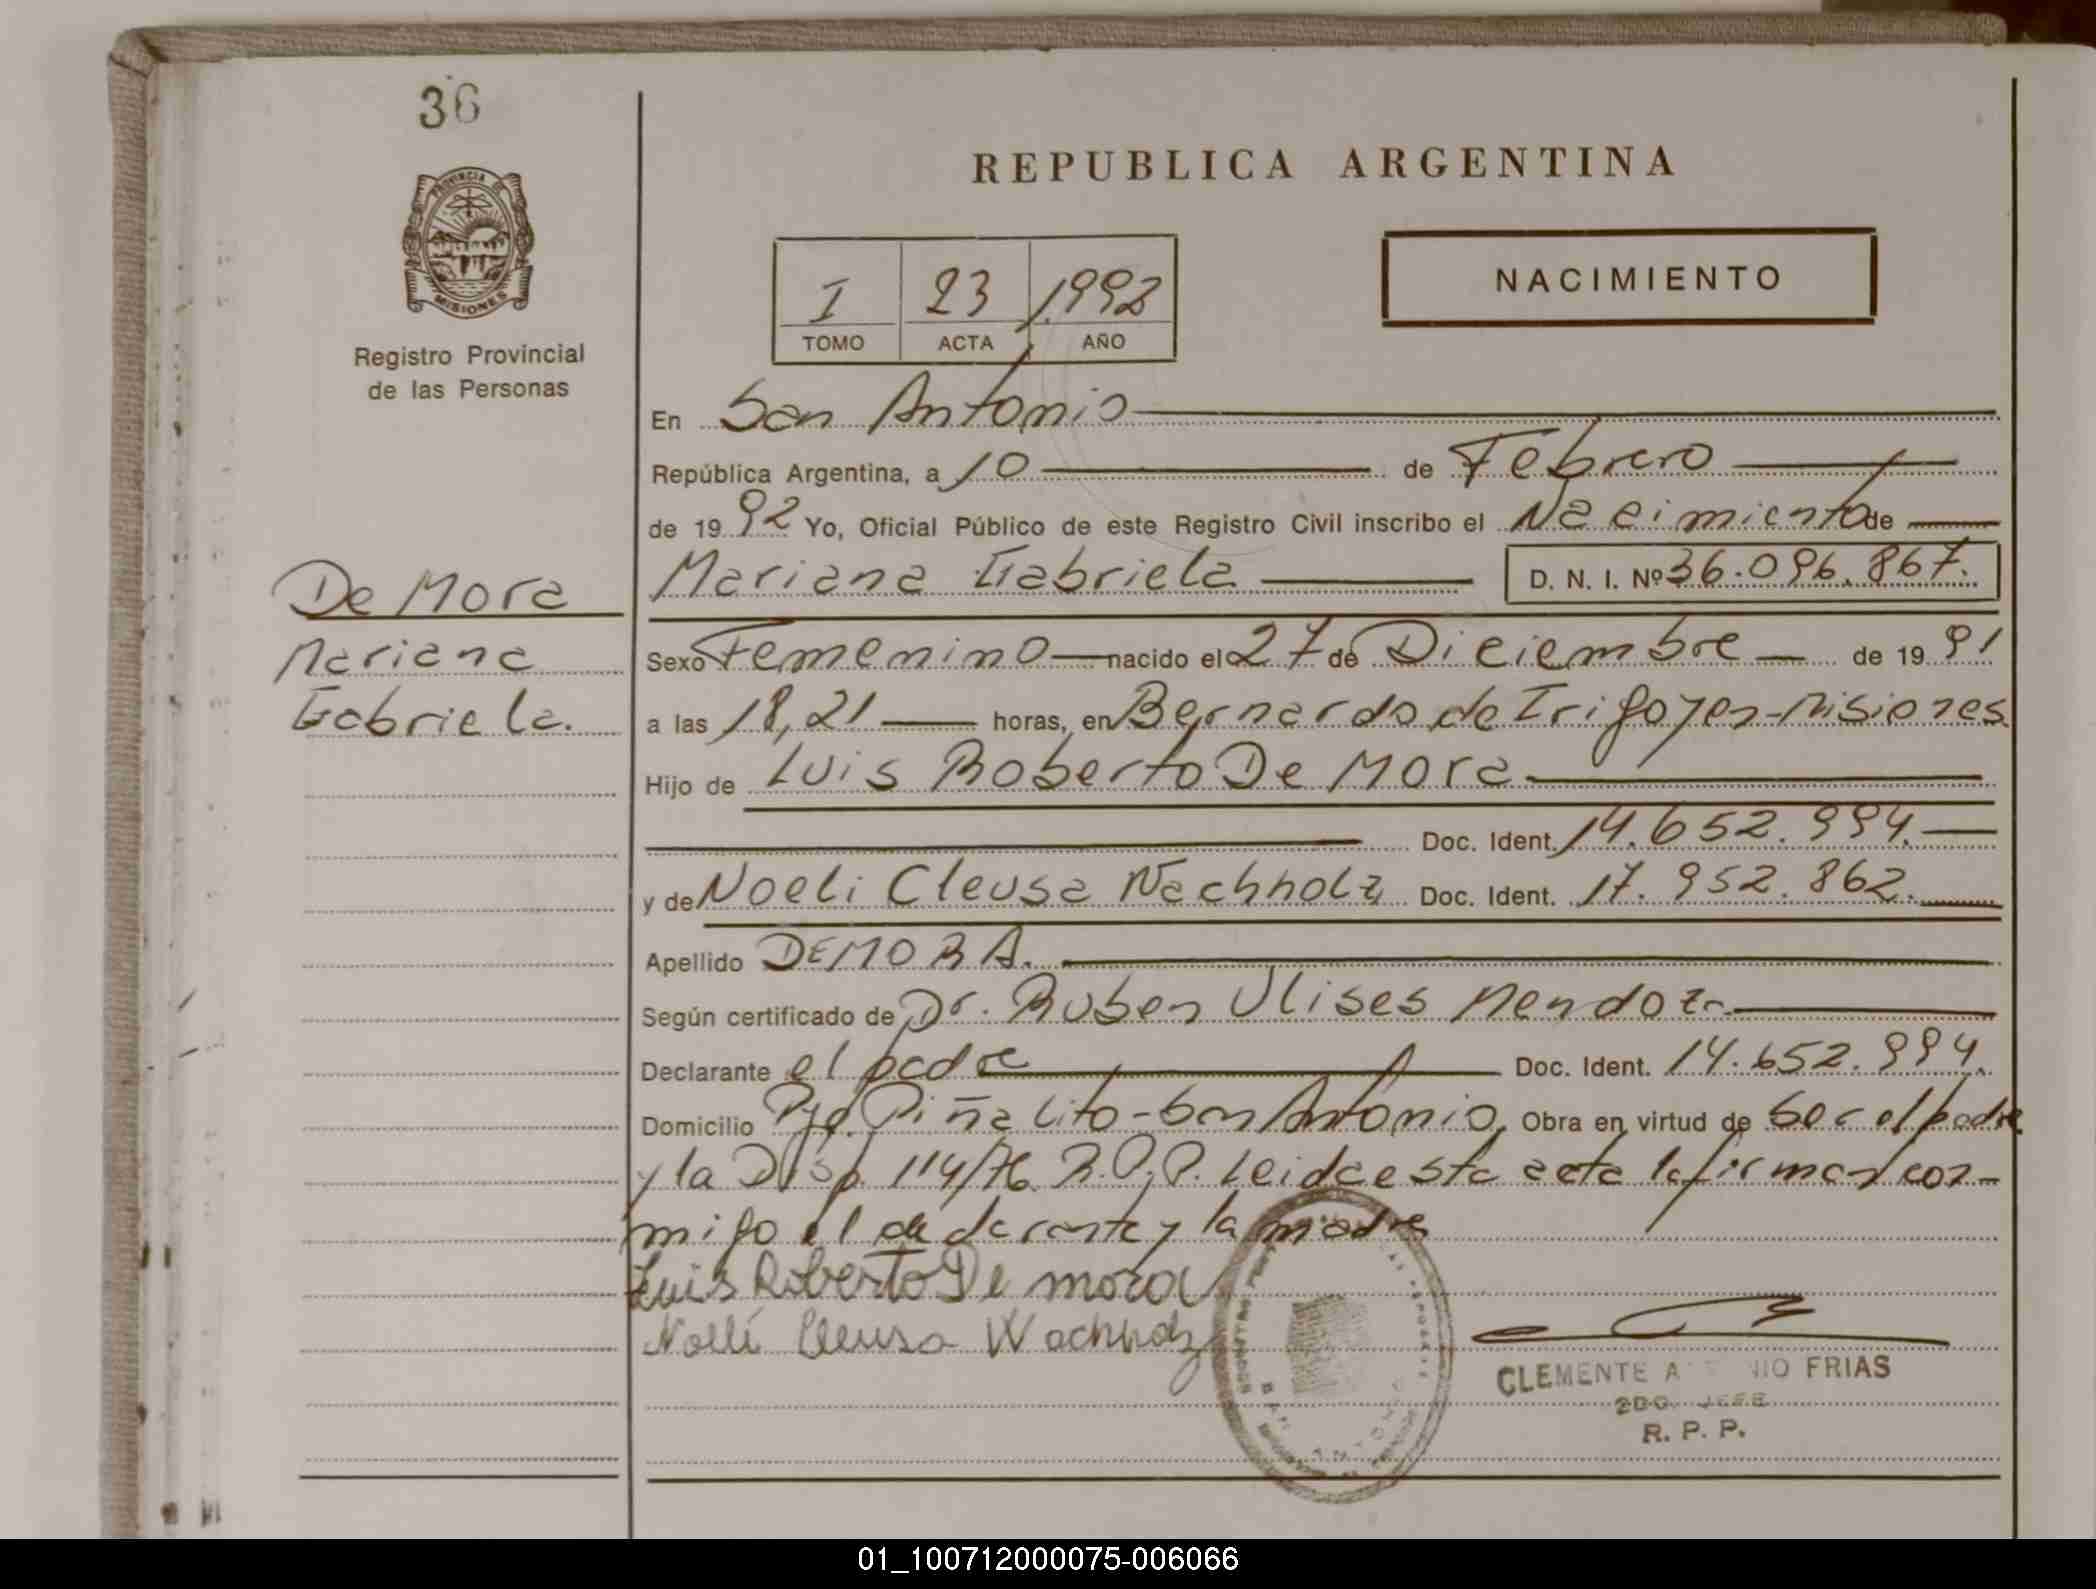 36
PROVINCIA DE
MISIONES
Registro Provincial
de las Personas
De Mora
Mariana
Gabriela.
REPUBLICA ARGENTINA
I 23 1992
TOMO ACTA AÑO
NACIMIENTO
En San Antonio
República Argentina, a 10 de Febrero
de 1992 Yo, Oficial Público de este Registro Civil inscribo el Nacimiento de
Mariana Gabriela D. N. I. Nº 36.096.867.
Sexo Femenino nacido el 27 de Diciembre de 1991
a las 18,21 horas, en Bernardo de Irigoyen-Misiones
Hijo de Luis Roberto De Mora
Doc. Ident. 14.652.994.
y de Noeli Cleusa Wachholz Doc. Ident. 17.952.862.
Apellido DE MORA.
Según certificado de Dr. Ruben Ulises Mendoza
Declarante el padre Doc. Ident. 14.652.994.
Domicilio Pje. Piñalito-San Antonio. Obra en virtud de Ser el padre
y la Disp. 114/76 R.P.P. Leida esta acta la firman con-
migo el declarante y la madre
Luis Roberto De mora
Noeli Cleusa Wachholz
SAN ANTONIO
CLEMENTE A NIO FRIAS
2DO. JEFE
R. P. P.
01_100712000075-006066